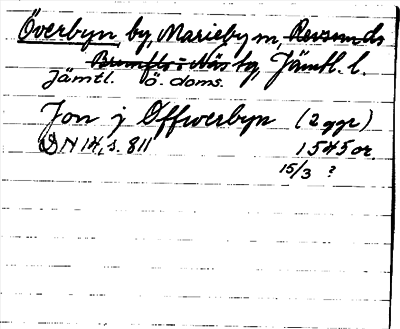 Överbyn by, Marieby sn, Revsunds
Brunflo o Näs tg, Jämtl. l.
Jämtl. ö. doms.
Jon j Offwerbyn (2 ggr)
DN 14, s. 811 1545 or.
15/3 ?